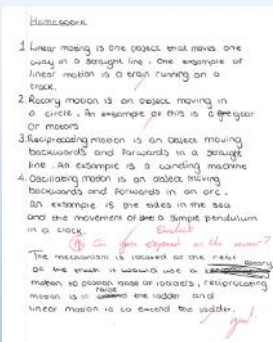 Homework
1. Linear moving is one object that moves one
way in a straight line. One exsample of
linear motion is a train running on a
track.
2. Rotary motion is an object moving in
a circle. An exsample of this is a gear
or motors
3. Reciprocating motion is an object moving
backwards and forwards in a straight
line. An exsample is a winding machine
4. Oscillating motion is an object moving
backwards and forwards in an arc.
an exsample is the tides in the sea
and the movement of a simple pendulum
in a clock.
Excellent
Can you expand on the answer?
The mechanism is located at the rear
of the truck it would use a rotary
motion to position base of ladders, reciprocating
motion is to raise the ladder and
linear motion is to extend the ladder.
good